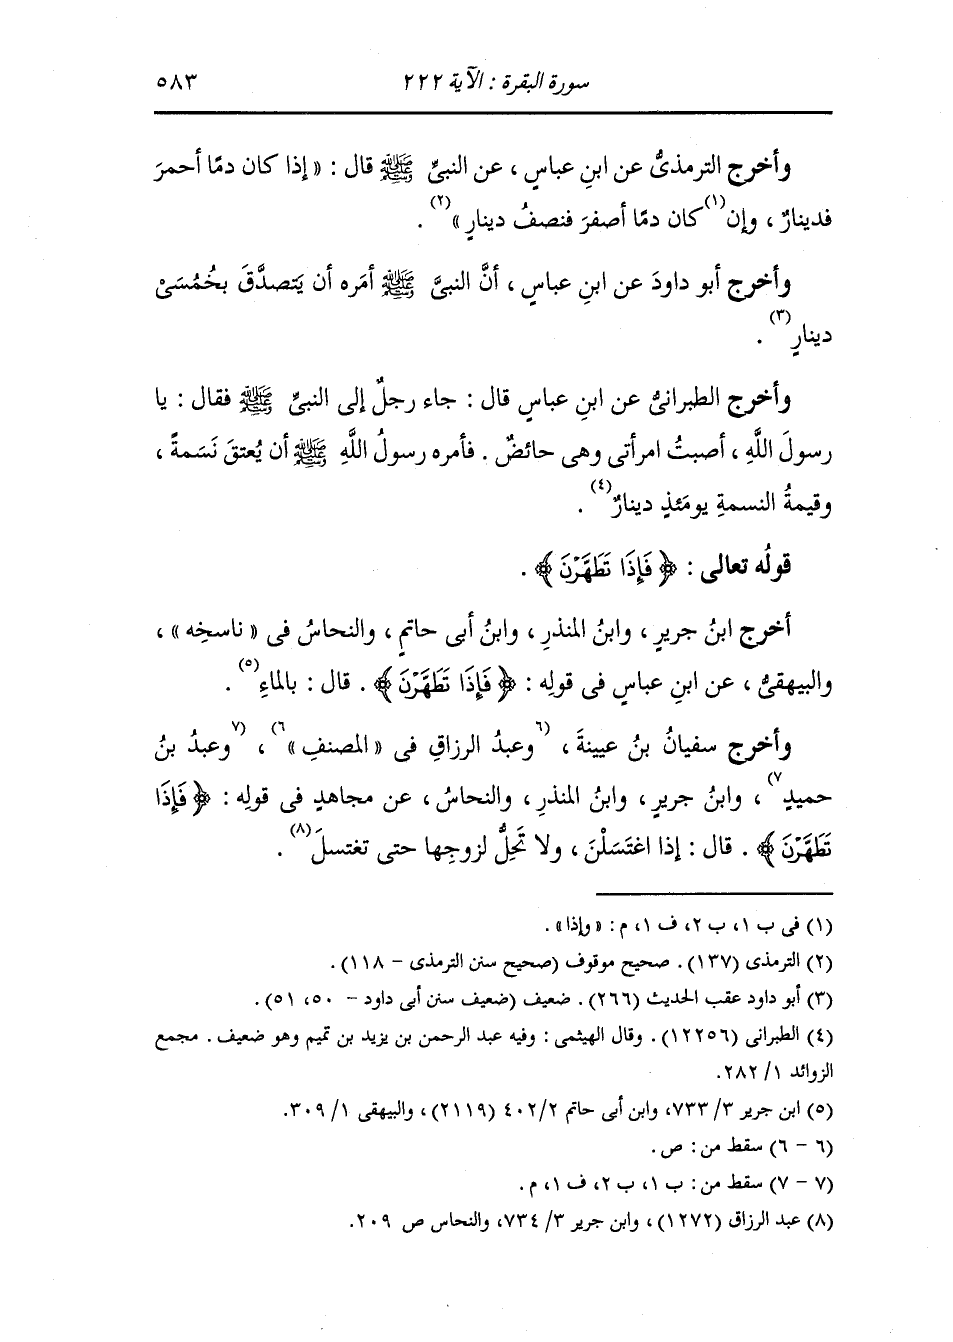 سورة البقرة : الآية ٢٢٢ ٥٨٣
وأخرج الترمذىُّ عن ابنِ عباسٍ ، عن النبىِّ ﷺ قال : « إذا كان دمًا أحمرَ
فدينارٌ ، وإن(١) كان دمًا أصفرَ فنصفُ دينارٍ »(٢) .
وأخرج أبو داودَ عن ابنِ عباسٍ ، أنَّ النبىَّ ﷺ أمَره أن يَتصدَّقَ بخُمُسَىْ
دينارٍ(٣) .
وأخرج الطبرانىُّ عن ابنِ عباسٍ قال : جاء رجلٌ إلى النبىِّ ﷺ فقال : يا
رسولَ اللَّهِ ، أصبتُ امرأتى وهى حائضٌ . فأمره رسولُ اللَّهِ ﷺ أن يُعتقَ نَسَمةً ،
وقيمةُ النسمةِ يومَئذٍ دينارٌ(٤) .
قولُه تعالى : ﴿ فَإِذَا تَطَهَّرْنَ ﴾ .
أخرج ابنُ جريرٍ ، وابنُ المنذرِ ، وابنُ أبى حاتمٍ ، والنحاسُ فى « ناسخِه » ،
والبيهقىُّ ، عن ابنِ عباسٍ فى قولِه : ﴿ فَإِذَا تَطَهَّرْنَ ﴾ . قال : بالماءِ(٥) .
وأخرج سفيانُ بنُ عيينةَ ، (٦وعبدُ الرزاقِ فى « المصنفِ »٦) ، (٧وعبدُ بنُ
حميدٍ٧) ، وابنُ جريرٍ ، وابنُ المنذرِ ، والنحاسُ ، عن مجاهدٍ فى قولِه : ﴿ فَإِذَا
تَطَهَّرْنَ ﴾ . قال : إذا اغتَسَلْنَ ، ولا تَحِلُّ لزوجِها حتى تغتسلَ(٨) .
(١) فى ب ١، ب ٢، ف ١، م : « وإذا » .
(٢) الترمذى (١٣٧) . صحيح موقوف (صحيح سنن الترمذى - ١١٨) .
(٣) أبو داود عقب الحديث (٢٦٦) . ضعيف (ضعيف سنن أبى داود - ٥٠، ٥١) .
(٤) الطبرانى (١٢٢٥٦) . وقال الهيثمى : وفيه عبد الرحمن بن يزيد بن تميم وهو ضعيف . مجمع
الزوائد ١/ ٢٨٢.
(٥) ابن جرير ٣/ ٧٣٣، وابن أبى حاتم ٤٠٢/٢ (٢١١٩) ، والبيهقى ١/ ٣٠٩.
(٦ - ٦) سقط من : ص .
(٧ - ٧) سقط من : ب ١، ب ٢، ف ١، م .
(٨) عبد الرزاق (١٢٧٢) ، وابن جرير ٣/ ٧٣٤، والنحاس ص ٢٠٩.